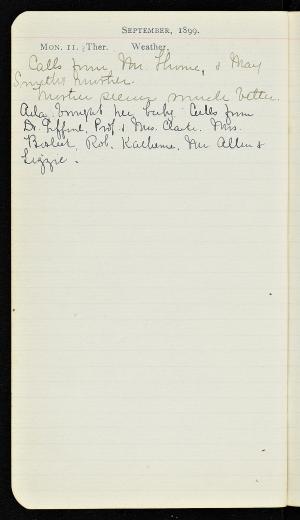 September, 1899.
Mon. 11. Ther. Weather.
Calls from Mr. Thorne, & May
Smyths mother.
Mother seems much better.
Ada brought her baby. Calls from
Dr. Giffin, Prof & Mrs. Clark. Mrs.
Rob. Katherine, Mr Allen &
Lizzie.